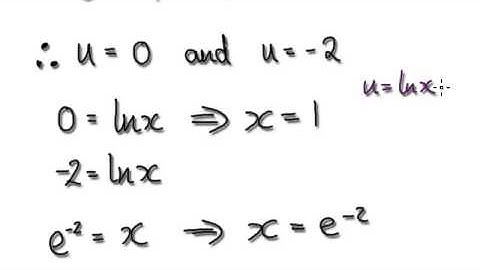 ∴ u = 0 and u = -2
u = ln x
0 = ln x ⇒ x = 1
-2 = ln x
e⁻² = x → x = e⁻²